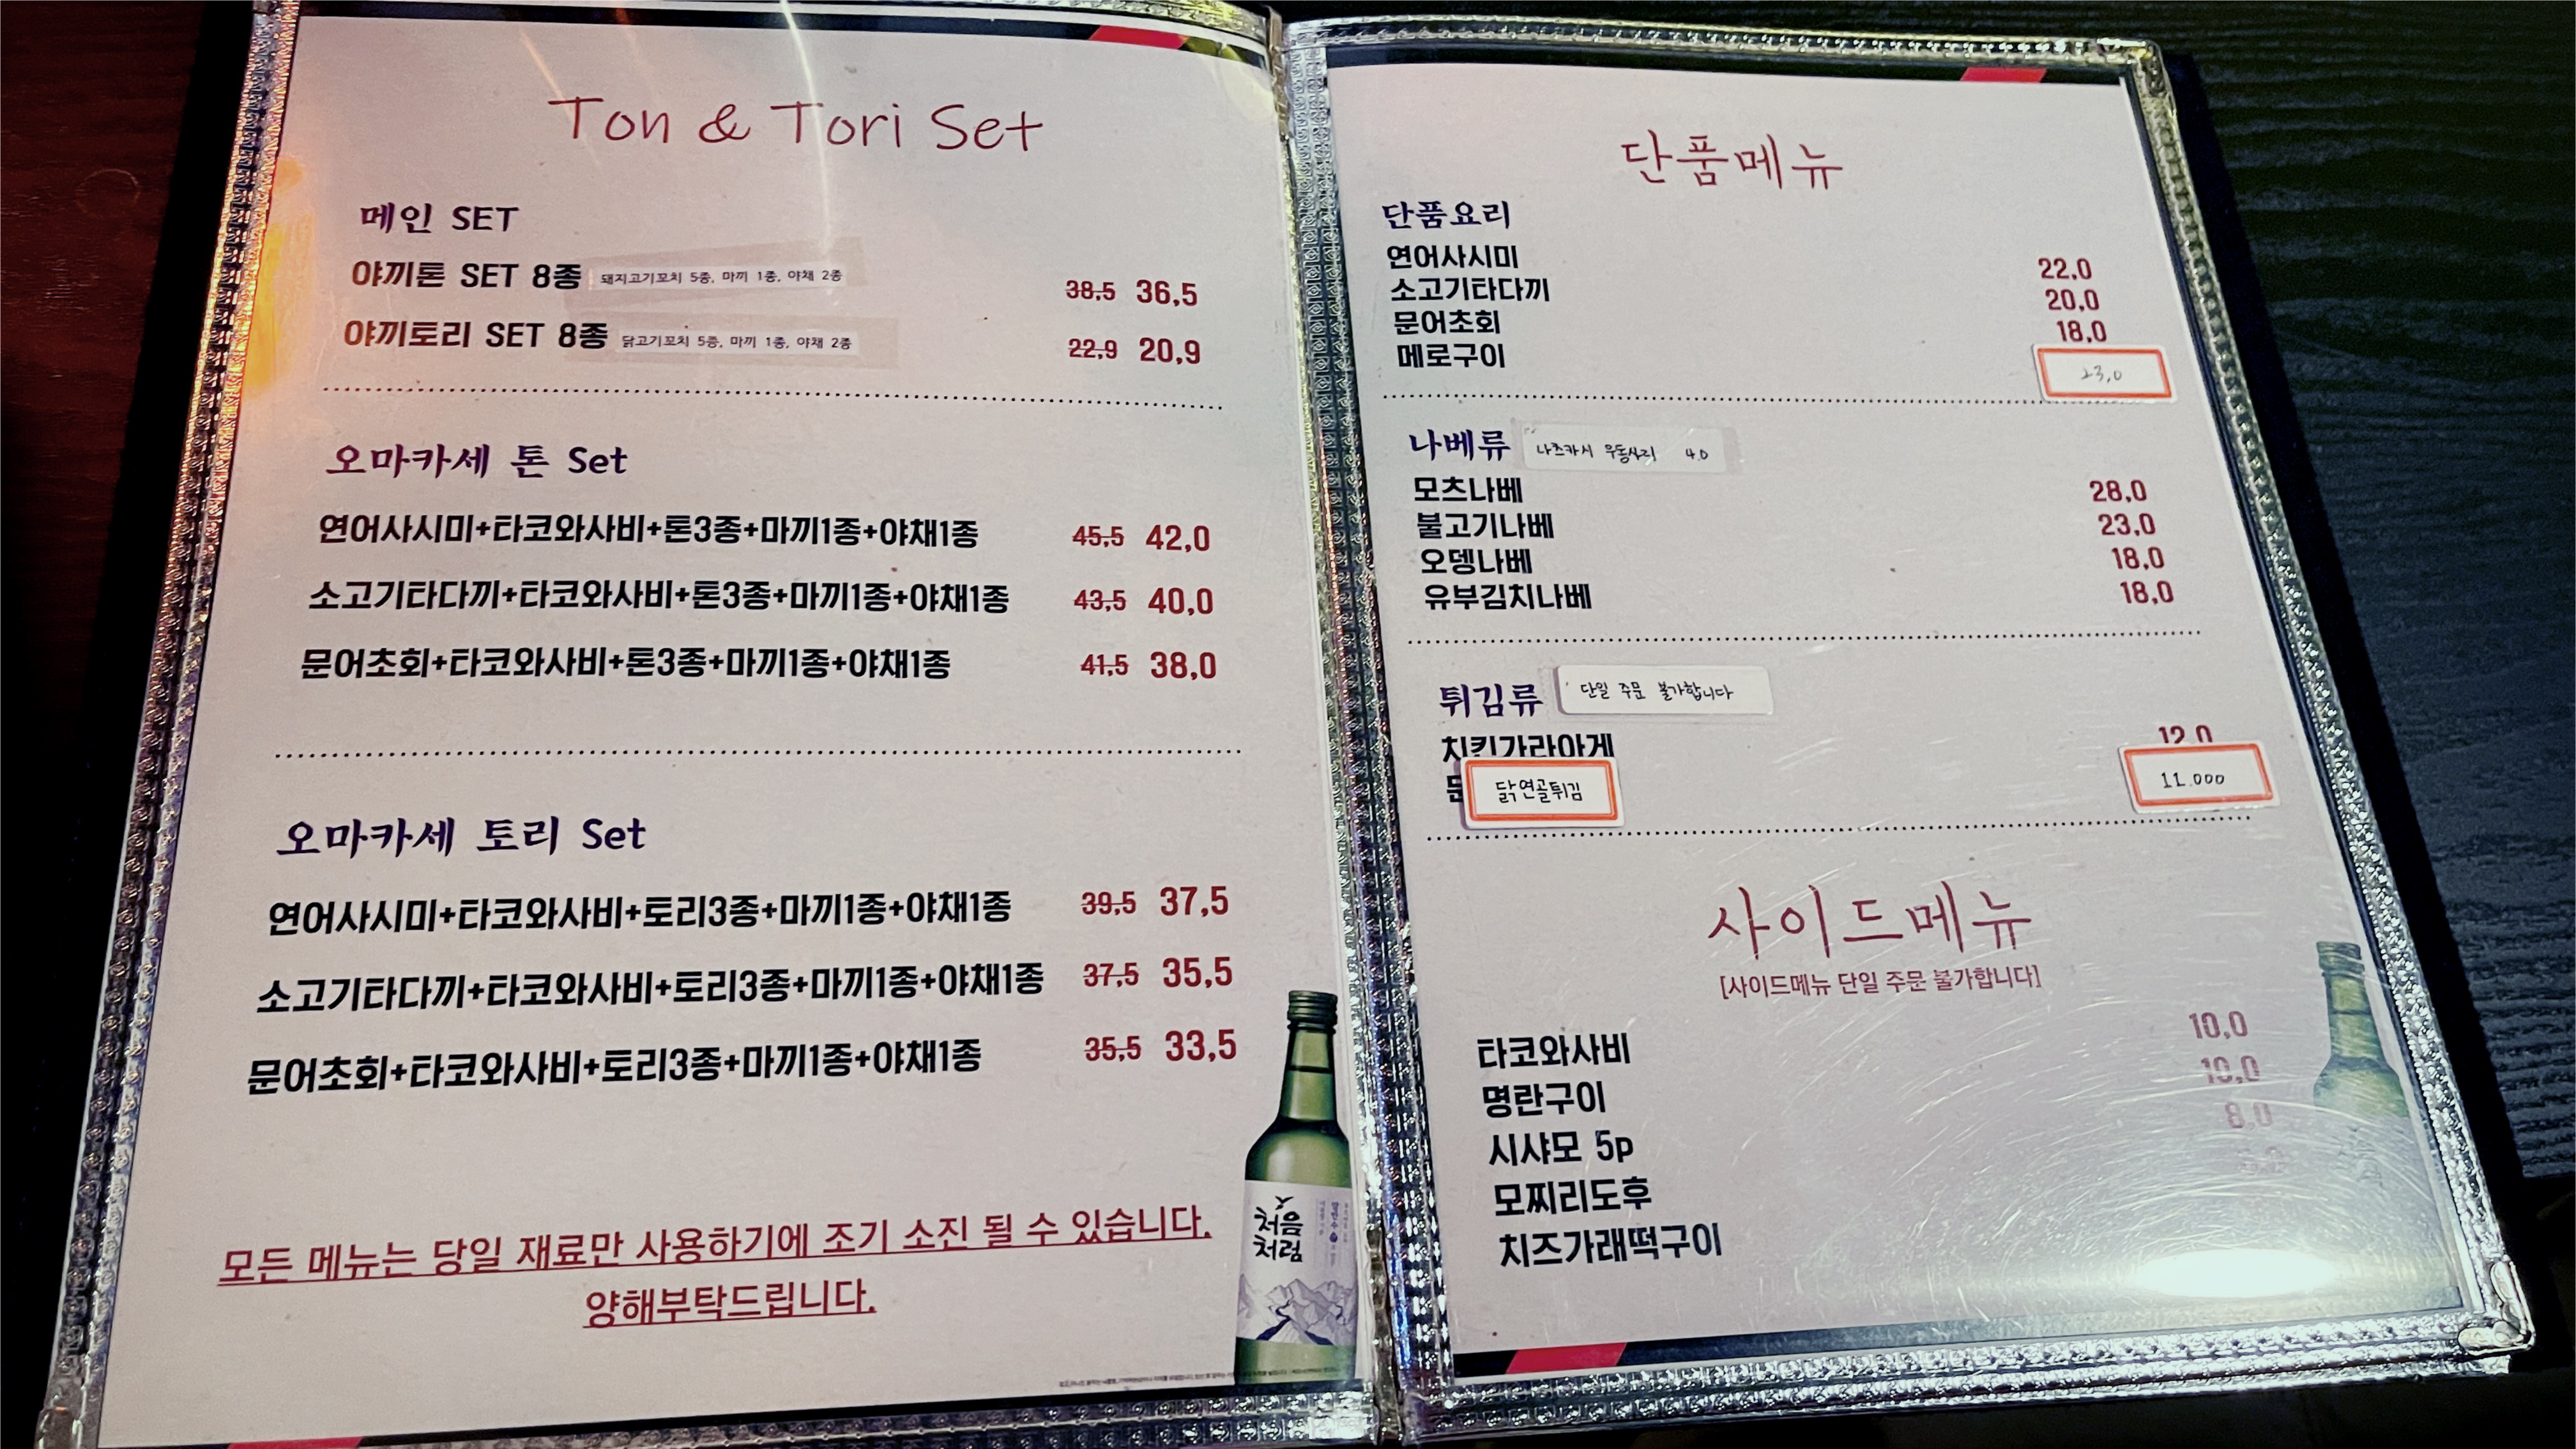 Ton & Tori Set
메인 SET
야끼톤 SET 8종 돼지고기꼬치 5종, 마끼 1종, 야채 2종 38,5 36,5
야끼토리 SET 8종 닭고기꼬치 5종, 마끼 1종, 야채 2종 22,9 20,9
오마카세 톤 Set
연어사시미+타코와사비+톤3종+마끼1종+야채1종 45,5 42,0
소고기타다끼+타코와사비+톤3종+마끼1종+야채1종 43,5 40,0
문어초회+타코와사비+톤3종+마끼1종+야채1종 41,5 38,0
오마카세 토리 Set
연어사시미+타코와사비+토리3종+마끼1종+야채1종 39,5 37,5
소고기타다끼+타코와사비+토리3종+마끼1종+야채1종 37,5 35,5
문어초회+타코와사비+토리3종+마끼1종+야채1종 35,5 33,5
모든 메뉴는 당일 재료만 사용하기에 조기 소진 될 수 있습니다.
양해부탁드립니다.
처음
처럼
단품메뉴
단품요리
연어사시미 22,0
소고기타다끼 20,0
문어초회 18,0
메로구이 23,0
나베류 나츠카시 우동사리 4.0
모츠나베 28,0
불고기나베 23,0
오뎅나베 18,0
유부김치나베 18,0
튀김류 단일 주문 불가합니다
치킨가라아게 12,0
닭연골튀김 11.000
사이드메뉴
[사이드메뉴 단일 주문 불가합니다]
타코와사비 10,0
명란구이 10,0
시샤모 5p 8,0
모찌리도후
치즈가래떡구이